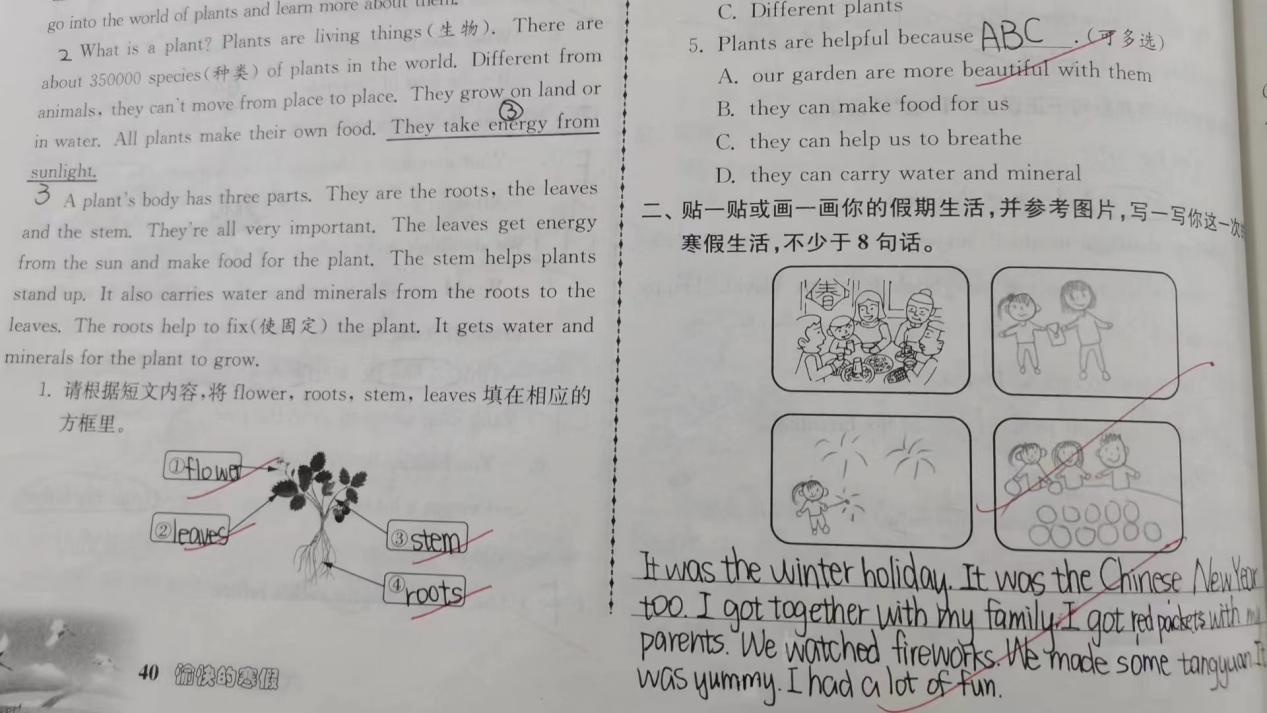 go into the world of plants and learn more about them.
2 What is a plant? Plants are living things(生物). There are
about 350000 species(种类) of plants in the world. Different from
animals, they can't move from place to place. They grow on land or
③
in water. All plants make their own food. They take energy from
sunlight.
3 A plant's body has three parts. They are the roots, the leaves
and the stem. They're all very important. The leaves get energy
from the sun and make food for the plant. The stem helps plants
stand up. It also carries water and minerals from the roots to the
leaves. The roots help to fix(使固定) the plant. It gets water and
minerals for the plant to grow.
1. 请根据短文内容,将 flower, roots, stem, leaves 填在相应的
方框里。
①flower
②leaves
③stem
④roots
40 愉快的寒假
C. Different plants
5. Plants are helpful because ABC .(可多选)
A. our garden are more beautiful with them
B. they can make food for us
C. they can help us to breathe
D. they can carry water and mineral
二、贴一贴或画一画你的假期生活,并参考图片,写一写你这一次
寒假生活,不少于 8 句话。
春
It was the winter holiday. It was the Chinese New Year
too. I got together with my family. I got red packets with my
parents. We watched fireworks. We made some tangyuan. It
was yummy. I had a lot of fun.